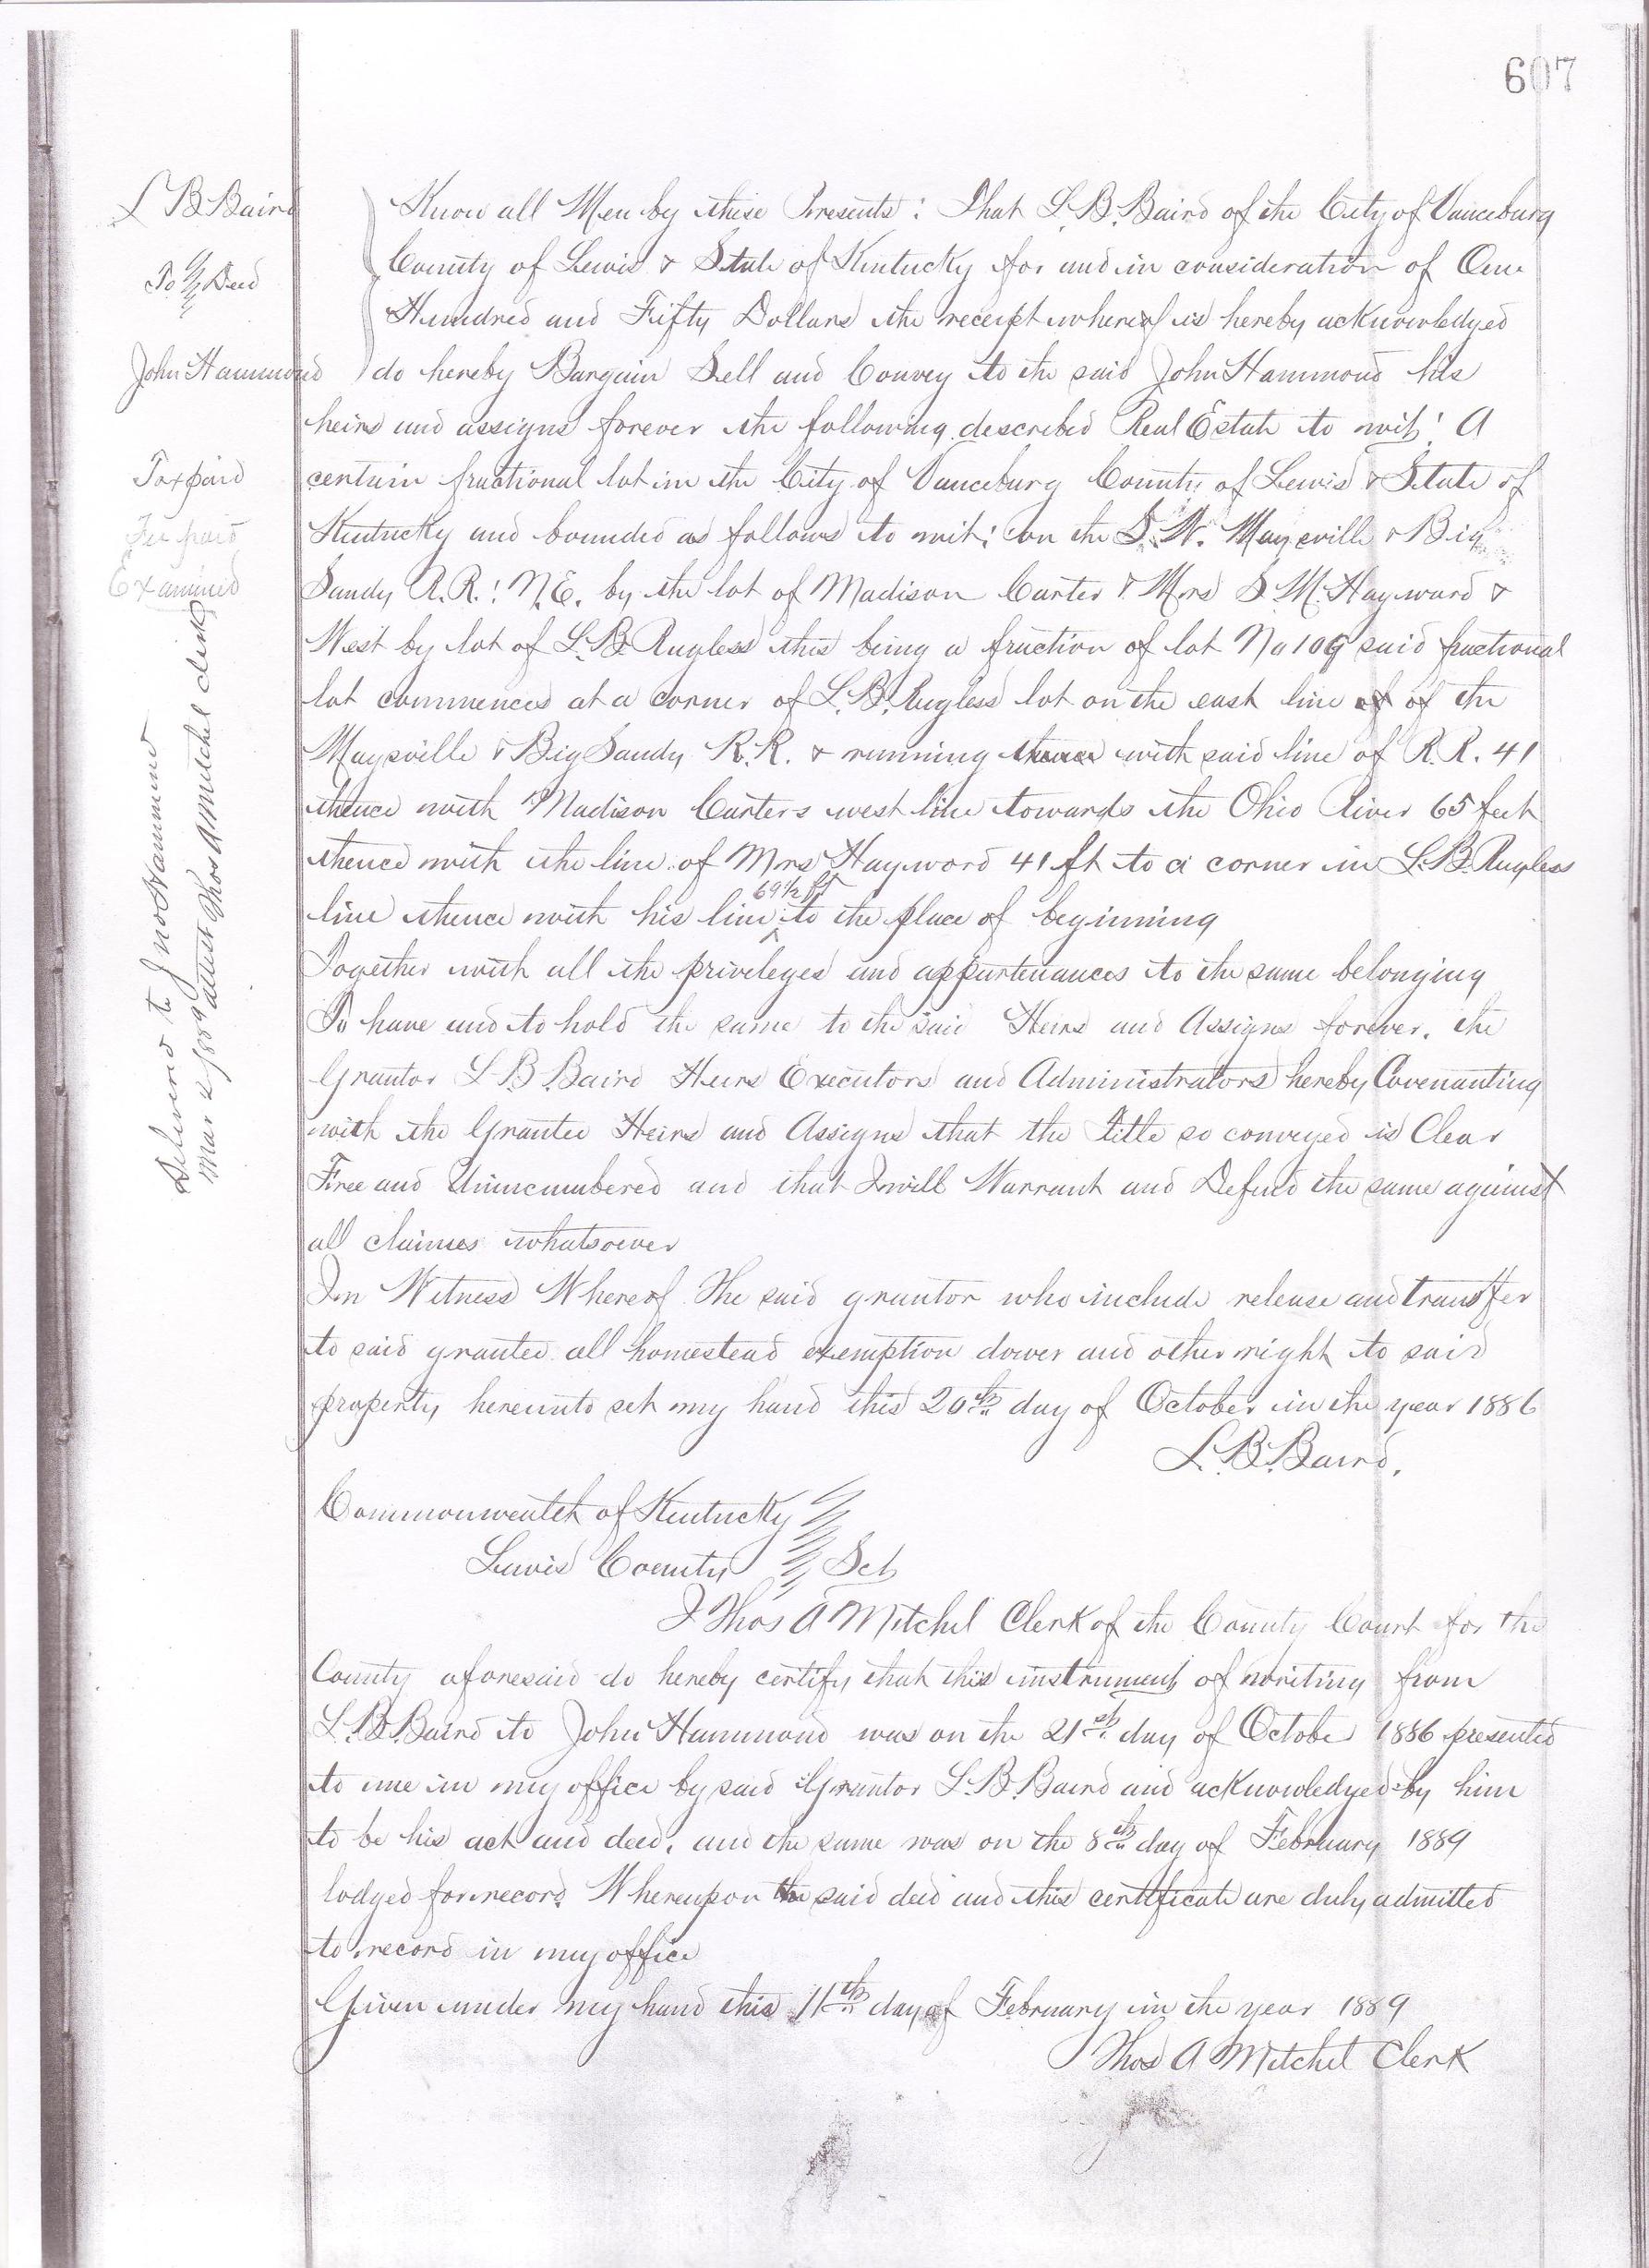 607
L B Baird
To Deed
John Hammond
Tax paid
Fee paid
Examined
Delivered to Jno Hammond
Mar 2 1889 attest Thos A Mitchel clerk
Know all Men by these Presents: That L. B. Baird of the City of Vanceburg
County of Lewis & State of Kentucky for and in consideration of One
Hundred and Fifty Dollars the receipt whereof is hereby acknowledged
do hereby Bargain Sell and Convey to the said John Hammond his
heirs and assigns forever the following described Real Estate to wit: A
certain fractional lot in the City of Vanceburg County of Lewis & State of
Kentucky and bounded as follows to wit: on the S. W. Maysville & Big
Sandy R.R.: N.E. by the lot of Madison Carter & Mrs S M. Hayward &
West by lot of L. B. Rugless this being a fraction of lot No 109 said fractional
lot commences at a corner of L. B. Rugless lot on the east line of of the
Maysville & Big Sandy R.R. & running thence with said line of R.R. 41
thence with Madison Carters west line towards the Ohio River 65 feet
thence with the line of Mrs Hayword 41 ft to a corner in L. B. Rugless
line thence with his line 69 1/2 ft to the place of beginning
Together with all the priveleges and appurtenances to the same belonging
To have and to hold the same to the said Heirs and Assigns forever. the
Grantor L B. Baird Heirs Executors and Administrators hereby Covenanting
with the Grantee Heirs and Assigns that the title so conveyed is Clear
Free and Unincumbered and that I will Warrant and Defend the same against
all claimes whatsoever
In Witness Whereof The said grantor who include release and transffer
to said grantee all homestead exemption dower and other right to said
property hereunto set my hand this 20th day of October in the year 1886
L. B. Baird.
Commonwealth of Kentucky
Lewis County Sct
I Thos A Mitchel Clerk of the County Court for the
County aforesaid do hereby certify that this instrument of writing from
L. B. Baird to John Hammond was on the 21st day of October 1886 presented
to me in my office by said Grantor L. B. Baird and acknowledged by him
to be his act and deed. and the same was on the 8th day of February 1889
lodged for record. Whereupon the said deed and this certificate are duly admitted
to record in my office
Given under my hand this 11th day of February in the year 1889
Thos A Mitchel Clerk